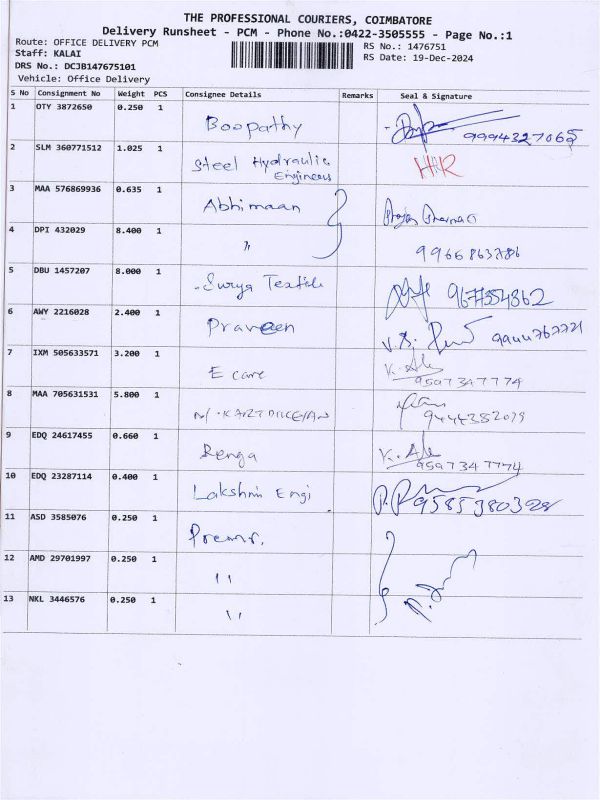 THE PROFESSIONAL COURIERS, COIMBATORE
Delivery Runsheet - PCM - Phone No.:0422-3505555 - Page No.:1
Route: OFFICE DELIVERY PCM
RS No.: 1476751
Staff: KALAI
RS Date: 19-Dec-2024
DRS No.: DCJB147675101
Vehicle: Office Delivery
S No Consignment No Weight PCS Consignee Details Remarks Seal & Signature
1 OTY 3872650 0.250 1 Boopathy 9994327065
2 SLM 360771512 1.025 1 Steel Hydraulic Engineers HR
3 MAA 576869936 0.635 1 Abhimaan
4 DPI 432029 8.400 1 " 9966863786
5 DBU 1457207 8.000 1 Surya Textile 9677354362
6 AWY 2216028 2.400 1 Praveen 9944767721
7 IXM 505633571 3.200 1 E care 9597347774
8 MAA 705631531 5.800 1 9444382079
9 EDQ 24617455 0.660 1 Renga 9597347774
10 EDQ 23287114 0.400 1 Lakshmi Engi 9585380328
11 ASD 3585076 0.250 1
12 AMD 29701997 0.250 1 "
13 NKL 3446576 0.250 1 "